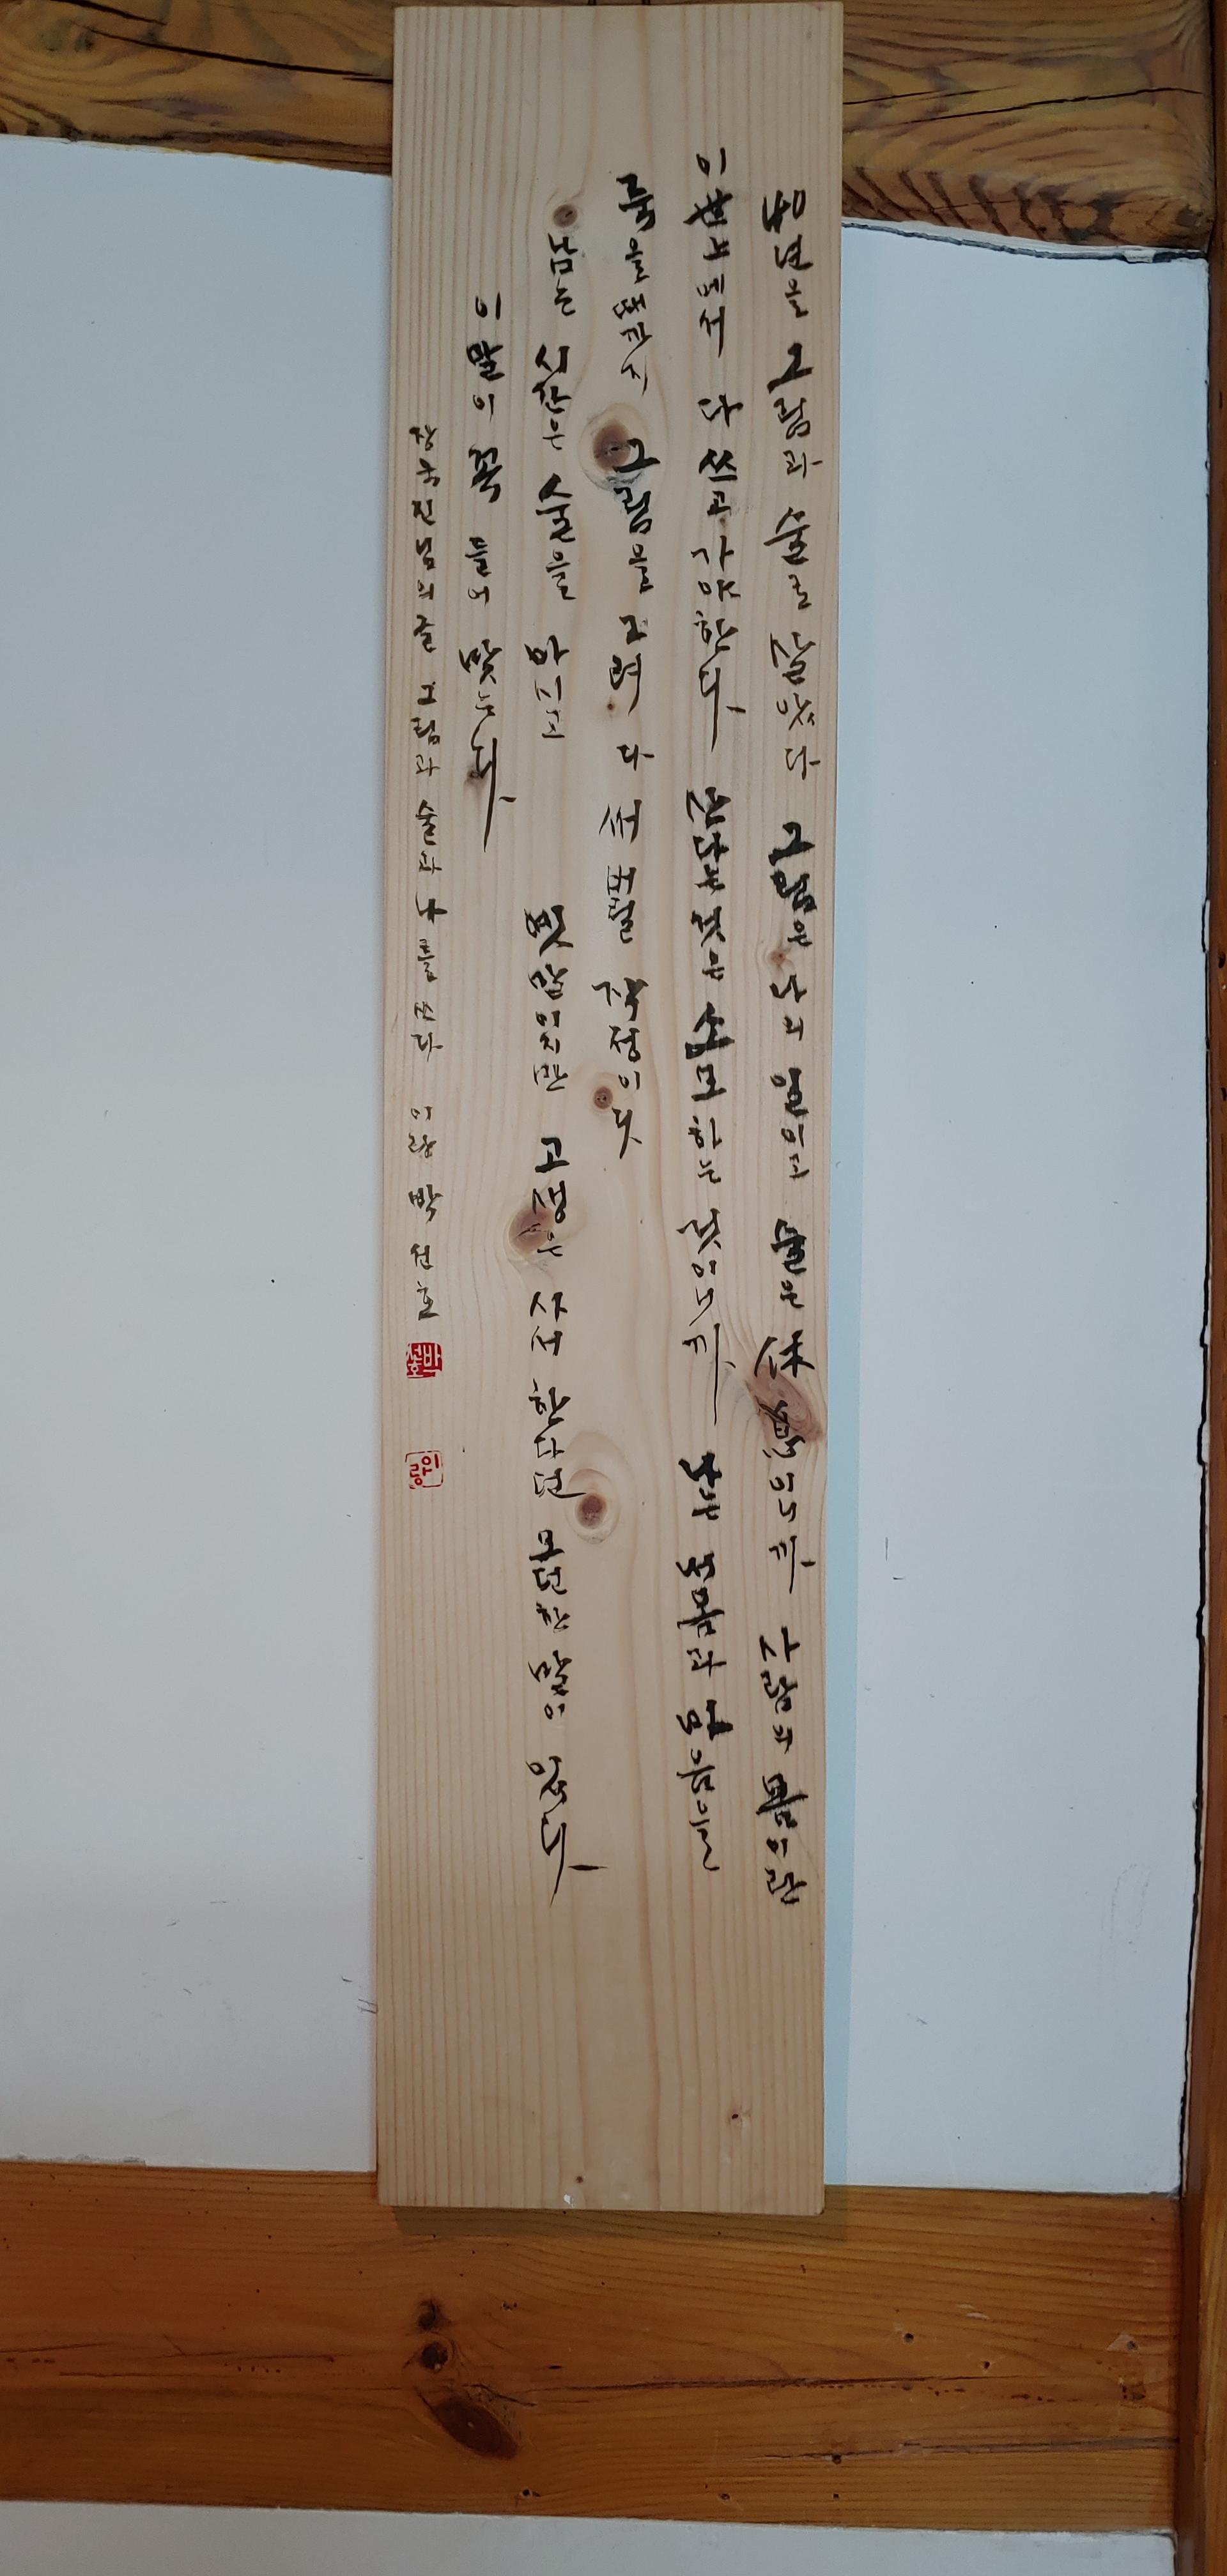 40년을 그림과 술로 살았다 그림은 나의 일이고 술은 休息이니까 사람의 몸이란
이 世上에서 다 쓰고 가야한다 산다는 것은 소모하는 것이니까 나는 내몸과 마음을
죽을때까지 그림을 그려 다 써 버릴 작정이다
남는 시간은 술을 마시고 옛말이지만 고생은 사서 한다던 모던한 말이 있다
이 말이 꼭 들어 맞는다
장욱진님의글 그림과 술과 나를 쓰다 이랑 박선호
박선호
이랑